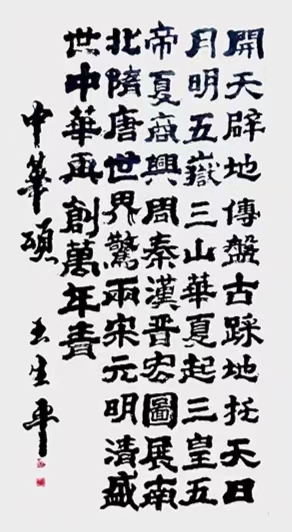 開天辟地傳盤古踩地托天日
月明五嶽三山華夏起三皇五
帝夏商興周秦漢晉宏圖展南
北隋唐世界驚兩宋元明清盛
世中華再創萬年青
中華頌 生平